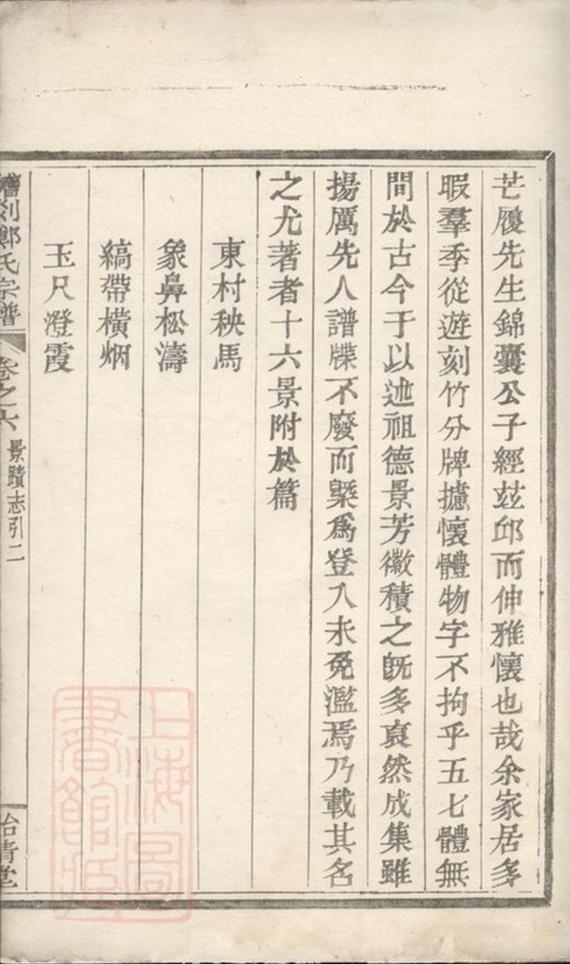 芒履先生錦囊公子經茲邱而伸雅懷也哉余家居多
暇羣季從遊刻竹分牌攄懷體物字不拘乎五七體無
間於古今于以述祖德景芳徽積之旣多裒然成集雖
揚厲先人譜牒不廢而槩爲登入未免濫焉乃載其名
之尤著者十六景附於篇
東村秧馬
象鼻松濤
縞帶橫烟
玉尺澄霞
剡鄭氏宗譜
卷之六
景蹟志引二
怡青堂
上海圖
書館藏